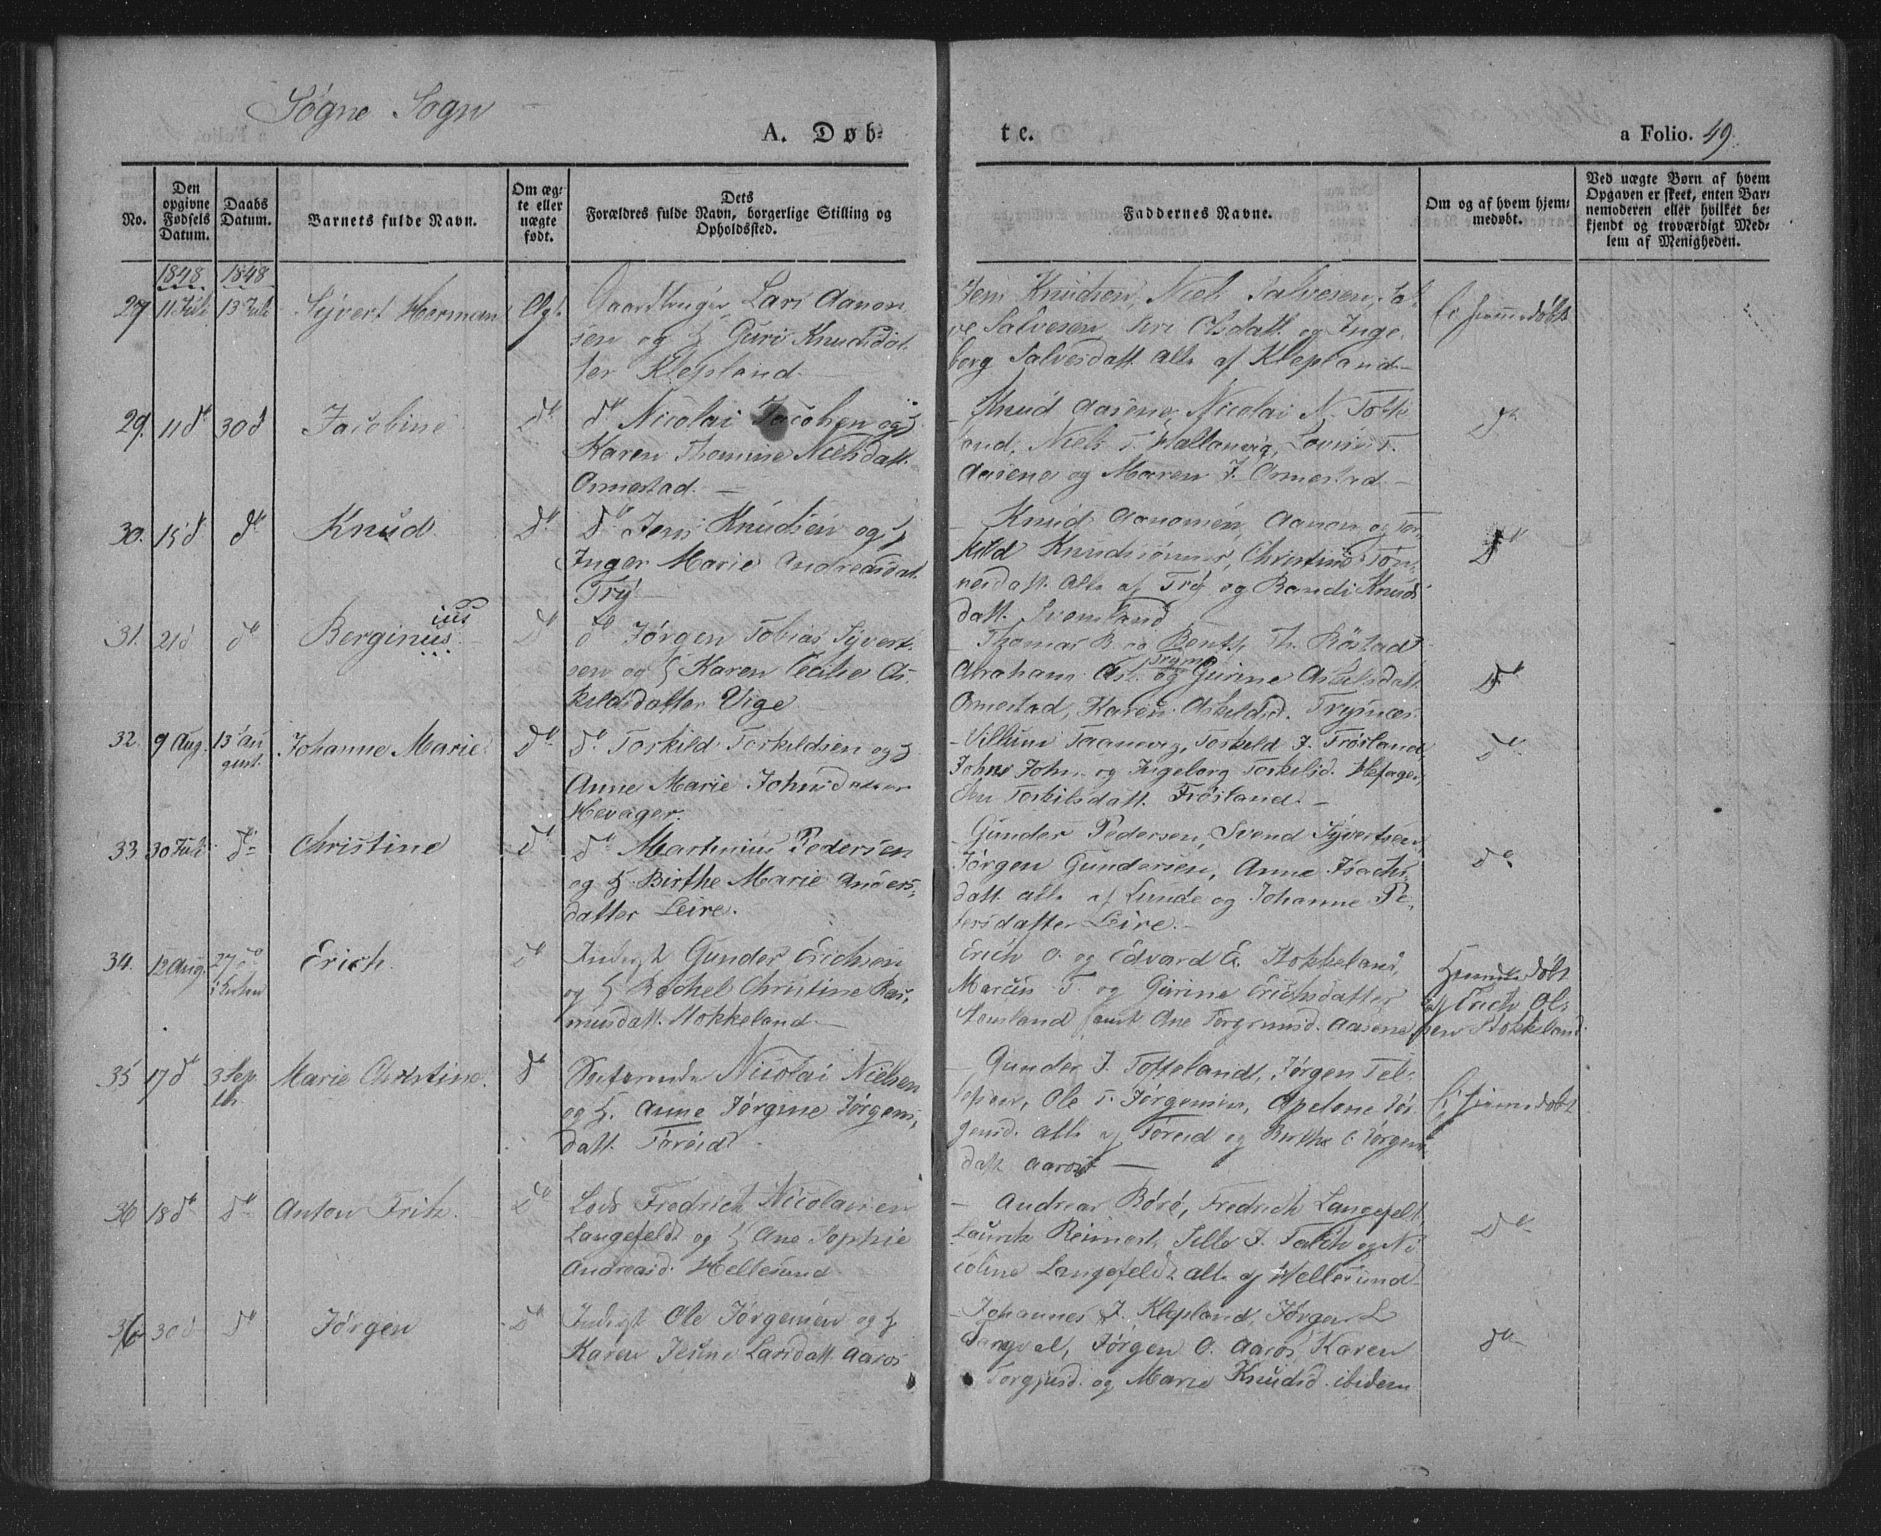 Søgne Sogn
A. Døb-
te.
a Folio. 49.
No.
Den opgivne Fødsels Datum.
Daabs Datum.
Barnets fulde Navn.
Om æg-te eller uægte født.
Dets Forældres fulde Navn, borgerlige Stilling og Opholdssted.
Faddernes Navne.
Om og af hvem hjem-medøbt.
Ved uægte Børn af hvem Opgaven er skeet, enten Bar-nemoderen eller hvilket be-kjendt og troværdigt Med-lem af Menigheden.
1848 1848
27 11 Juli 13 Juli Syvert Herman Ægt.
Gaardbruger Lars Aanon
sen og H Guri Knudsdat
ter Klepland
Jens Knudsen, Niels Salvesen,
Salvesen Olsdatt og Inge
borg Salvesdatt alle af Klepland
hjemmedøbt
29. 11 d 30 d Jacobine do
do Nicolai Jacobsen og H
Karen Thomine Nielsdatt
Ormestad.
Knud Aasene, Nicolai N. Totte
land, Niels T. Hallanvig,
Aasene og Maren J. Ormestad
do
30. 15 d do Knud. do
do Jens Knudsen og H
Inger Marie Andreasdat
Try
Knud Aanonsen, Aanon og Tor
kild Knudsønner, Christine Tøn
nesdatt alle af Try og Randi Knuds
datt. Svensland
do
31. 21 d do Berginius do
ius
do Jørgen Tobias Syvert
sen og H Karen Cecilie As
kildsdatter Vige
Thomas B. og Bent Th. Røstad
Abraham As. og Gurine Askilsdatt
Ormestad, Karen Askildsd. Trysnæs
do
32. 9 Aug. 13 Au
gust. Johanne Marie do
do Torkild Torkildsen og H
Anne Marie Johnsdatter
Hevager.
Villum Taanevig, Torkild J. Frøsland
Johns John og Ingeborg Torkilsd. Hefager,
Torkilsdatt. Frøsland.
do
33 30 Juli do Christine do
do Martinius Pedersen
og H Birthe Marie Anders-
datter Leire.
Gunder Pedersen, Svend Syvertsen,
Jørgen Gundersen, Anne Isachs
datt alle af Lunde og Johanne Pe-
tersdatter Leire.
do
34. 12 Aug. 27 do
i Kirken Erich. do
Inderst Gunder Erichsen
og H Rachel Christine Ras
musdatt. Stokkeland
Erich O. og Edvard E. Stokkeland,
Marcus T. og Gurine Erichsdatter
Aamsland samt Ane Torgrimsd. Aasene
Hjemmedøbt
af Erich Ol-
sen Stokkeland.
35 17 do 3 Sep
tbr Marie Christine. do
Søefarende Nicolai Nielsen
og H. Anne Jørgine Jørgens-
datt. Toreid
Gunder J. Totteland, Jørgen Tel-
lefsen, Ole T. Jørgensen, Apelone Jør
gensd. alle af Toreid og Birthe C. Jørgens
datt Aaros
hjemmedøbt
36 18 do do Anton Fritz. do
Lods Fredrich Nicolaisen
Langefeldt og H Ane Sophie
Andreasd. Hellesund
Andreas Børø, Fredrich Langefelt,
Lauritz Reimert, Sille J. Falch og Ni
coline Langefeldt alle af Hellesund
do
36 30 d do Jørgen do
Inderst Ole Jørgensen og H
Karen Larsdatt. Aaros
Johannes J. Klepland, Jørgen L
Jørgen O. Aaros, Karen
Torgjusd. og Marie Knudsd. ibidem
do